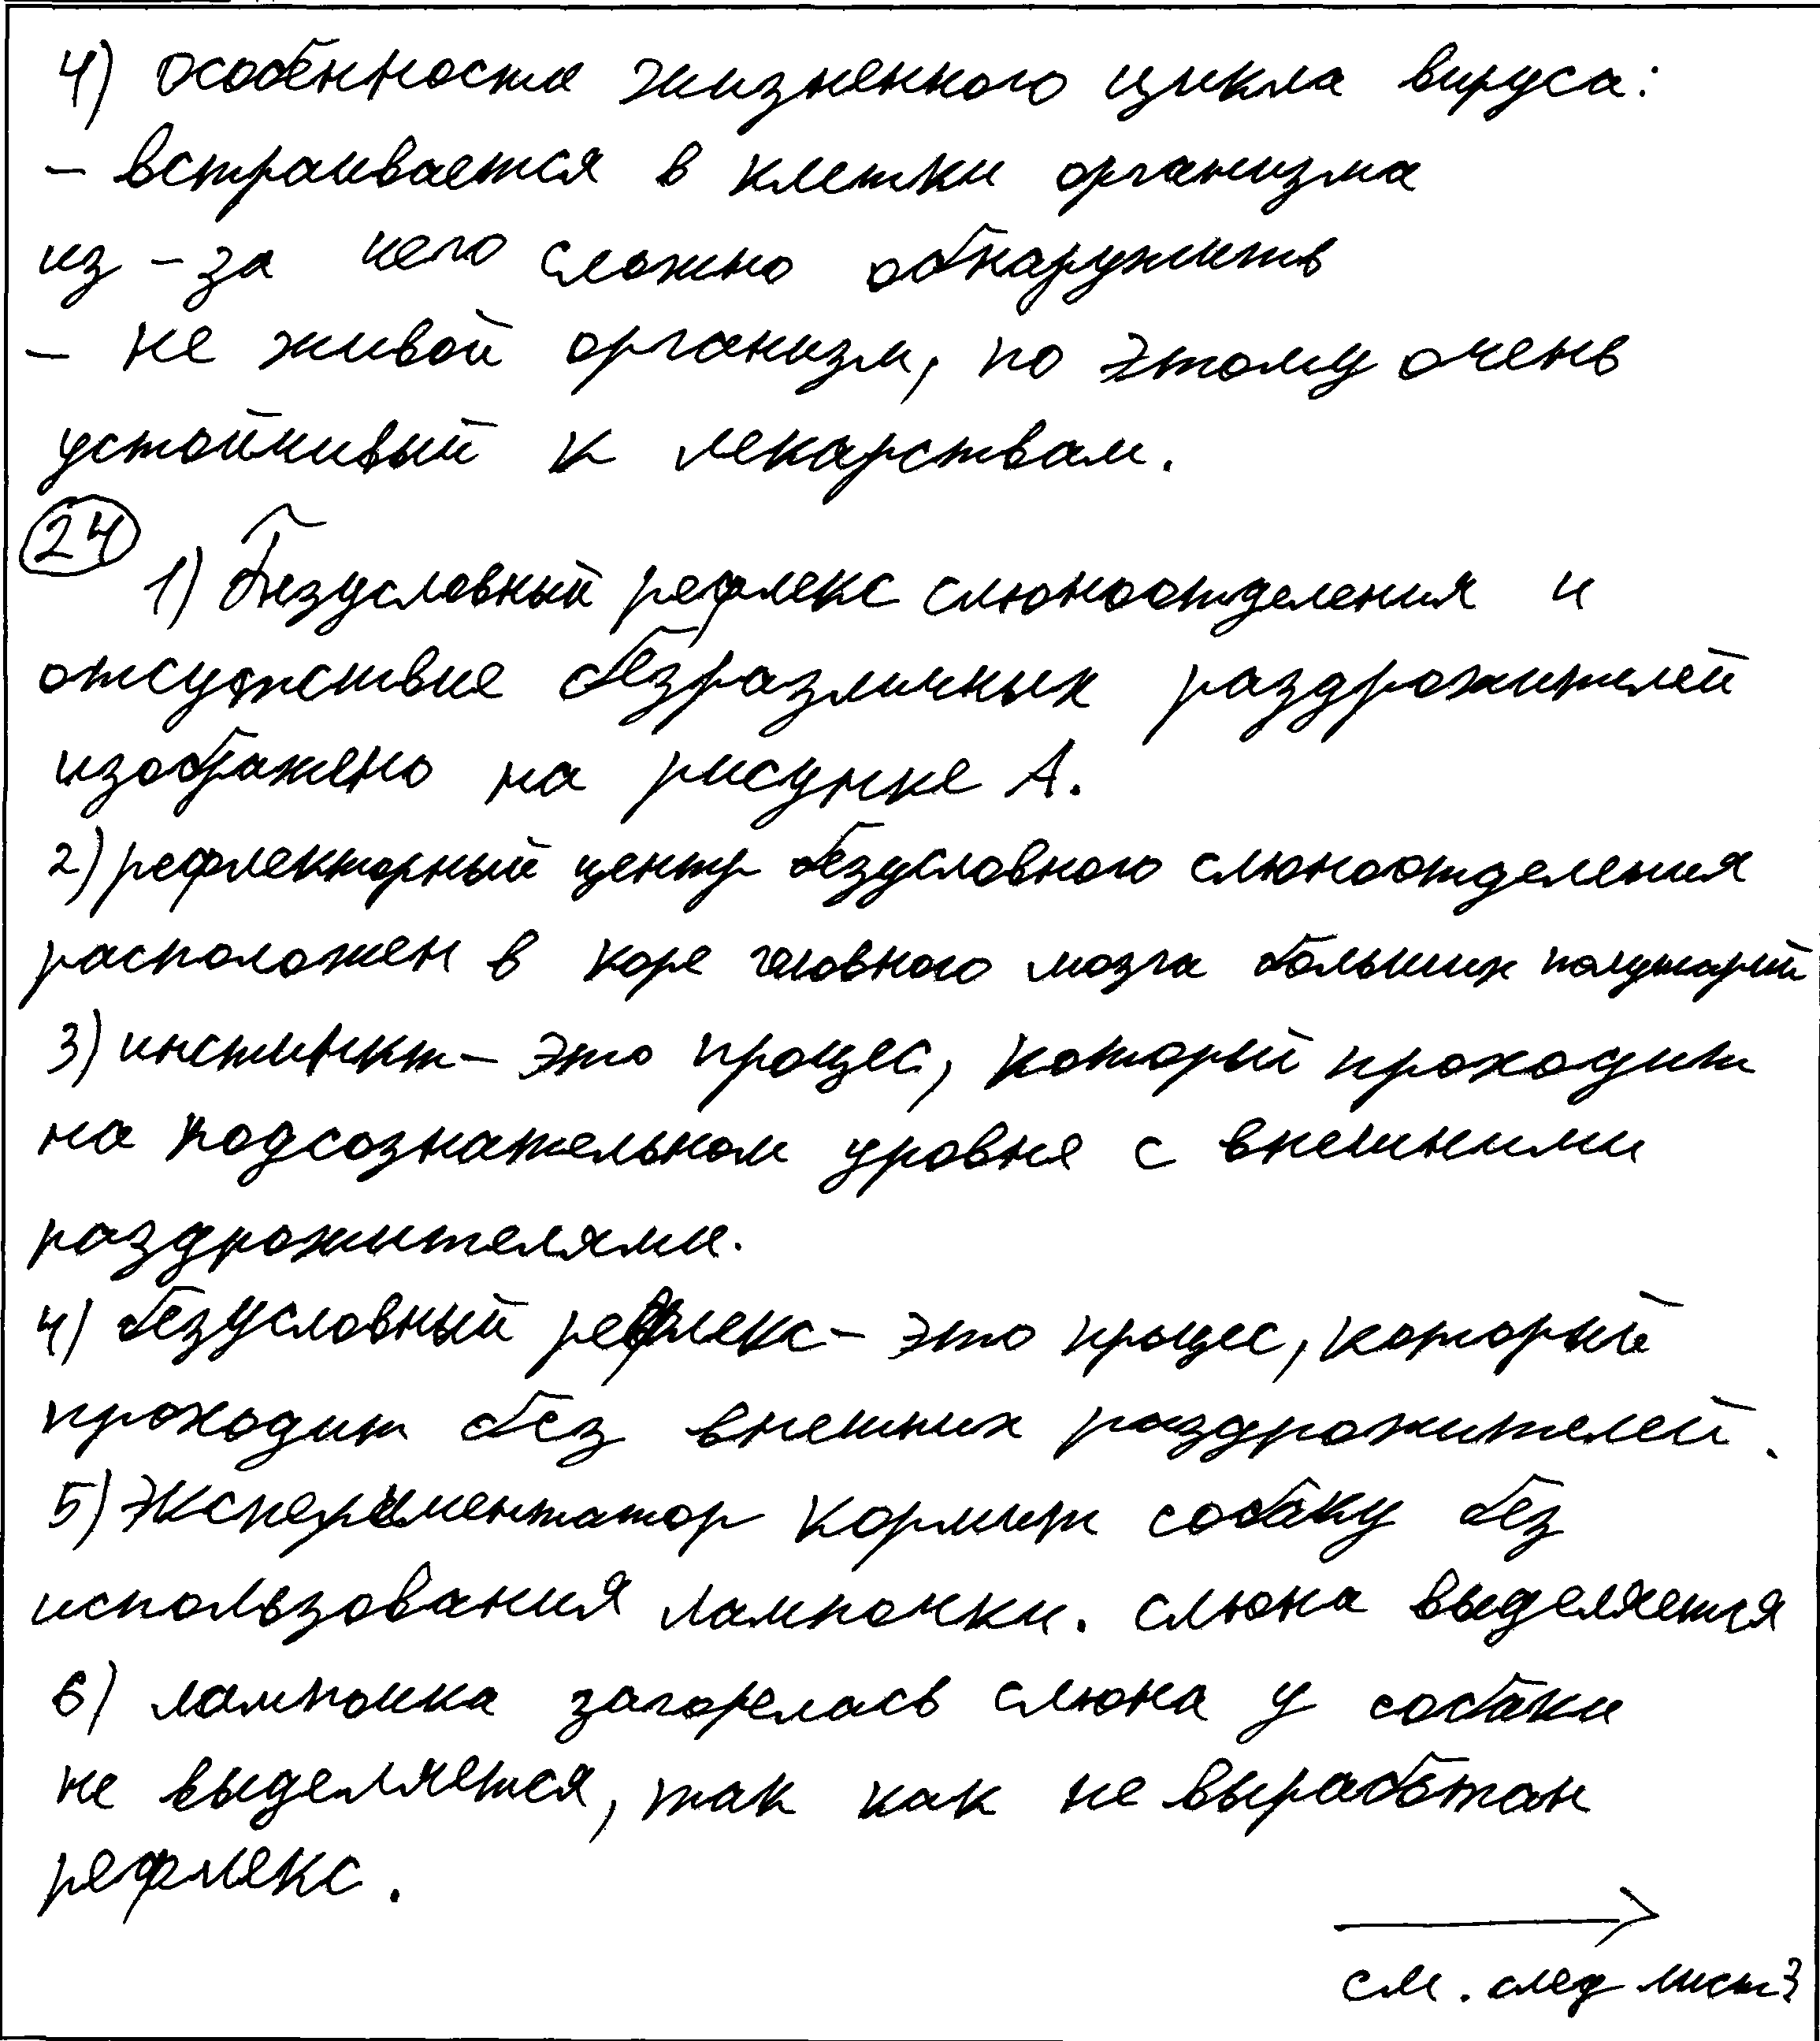 4) Особенности жизненного цикла вируса:
- встраивается в клетки организма
из-за чего сложно обнаружить
- не живой организм, по этому очень
устойчивый к лекарствам.
24
1) Безусловный рефлекс слюноотделения и
отсутствие безразличных раздрожителей
изображено на рисунке А.
2) рефлекторный центр безусловного слюноотделения
расположен в коре головного мозга больших полушарий
3) инстинкт - это процес, который проходит
на подсознательном уровне с внешними
раздрожителями.
4) безусловный рефлекс - это процес, который
проходит без внешних раздрожителей.
5) Экспериментатор кормит собаку без
использования лампочки. слюна выделяется
6) лампочка загорелась слюна у собаки
не выделяется, так как не выработан
рефлекс.
см. след лист